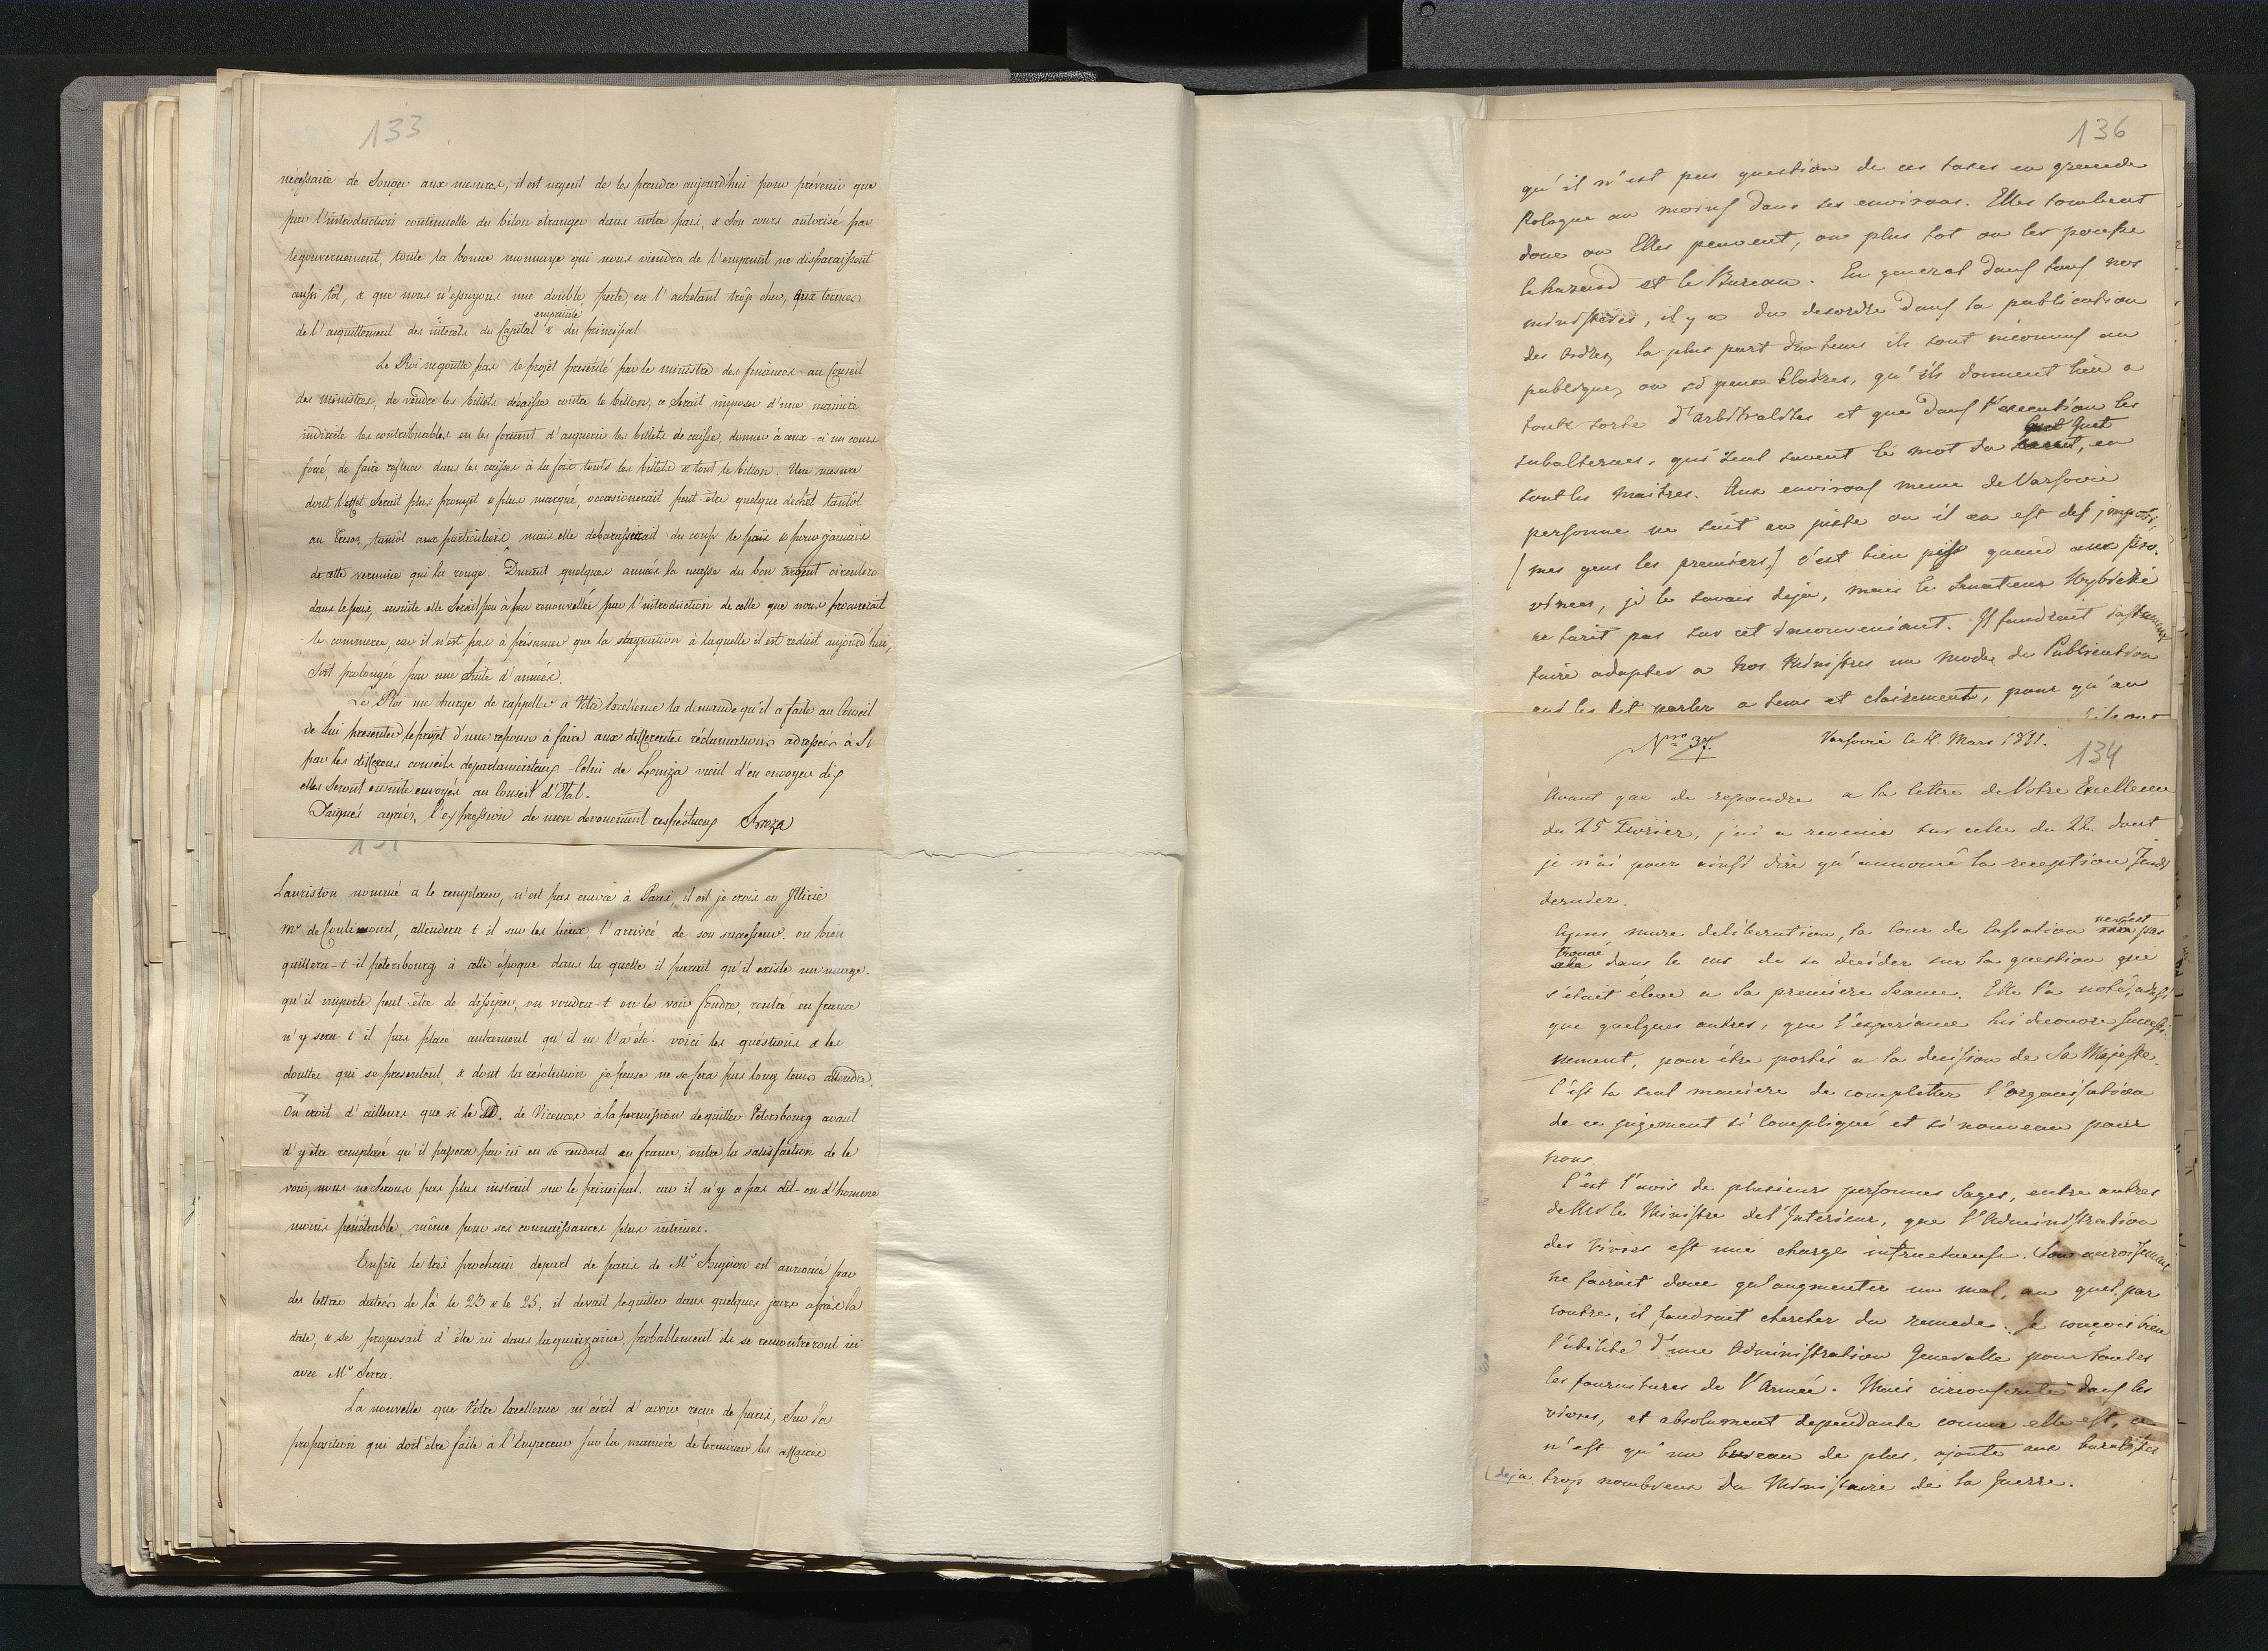 133
nécessaire de songer aux mesures, il est urgent de les prendre aujourd'hui pour prévenir que
par l'introduction continuelle du bilon étranger dans notre pais, & son cours autorisé par
le gouvernement, toute la bonne monnaye qui nous viendra de l'emprunt ne disparaissent
aussi tôt, & que nous n'essuyons une double perte, en l'achetant trop cher, aux termes
de l'aquittement des interets du Capital emprunté & du principal
Le Roi ne goutte pas le projet presenté par le ministre des finances au Conseil
des ministres, de vendre les billets de caisse contre le billon, ce serait imposer d'une manière
indirecte les contribuables en les forcant d'aquerir les billets de caisse, donner à ceux-ci un cours
forcé, de faire refluer dans les caisses à la fois touts les billets & tout le billon. Une mesure
dont l'effet serait plus prompt & plus marqué, occasionerait peut-etre quelque dechet tantôt
au tresor, tantôt aux particuliers mais elle debarasserait du coup le pais & pour jamais
de cette vermine qui la ronge. Durant quelques années la masse du bon argent circulera
dans le pais, ensuite elle serait peu à peu renouvellée par l'introduction de celle que nous procurerait
le commerce, car il n'est pas à présumer que la stagnation à laquelle il est reduit aujourd'hui,
soit prolongée par une suite d'années.
Le Roi me charge de rappeller à Votre Excellence la demande qu'il a faite au Conseil
de Lui presenter le projet d'une reponse à faire aux differentes réclamations adressées à Lui
par les differens conseils departamentaux Celui de Lomza vient d'en envoyer dix
elles seront ensuite envoyés au Conseil d'Etat.
Daignés agréer, l'expression de mon devouement respectueux Breza
131
Lauriston nommé a le remplacer, n'est pas encore à Paris, il est je crois en Illirie
Mr de Coulincourt, attendera-t-il sur les lieux l'arrivée de son successeur ou bien
quittera-t-il petersbourg à cette époque dans la quelle il parait qu'il existe un nuage
qu'il importe peut être de dissiper, ou voudra-t-on le voir fondre, rentré en france
n'y sera-t-il pas placé autrement qu'il ne l'a été. voici les questions & les
douttes qui se presentent, & dont la resolution je pense ne se fera pas long tems attendre.
On croit d'ailleurs que si le D. de Vicence à la permission de quitter Petersbourg avant
d'y être remplacé qu'il passera par ici en se rendant en france, outre la satisfaction de le
voir, nous ne serons pas plus instruit sur le principal. car il n'y a pas dit-on d'homme
moins pénétrable, même pour ses connaissances plus intimes.
Enfin le très prochain depart de paris de Mr Bignon est annoncé par
des lettres datées de là le 23 & le 25, il devait le quitter dans quelques jours après la
date, & se proposait d'être ici dans la quinzaine, probablement ils se rencontreront ici
avec Mr Serra.
La nouvelle que Votre Excellence m'écrit d'avoir reçue de paris, sur la
proposition qui doit être faite à l'Empereur sur la manière de terminer les affaires
136
qu'il n'est pas question de ces taxes en grande
Pologne au moins dans ses environs. Elles tombent
donc ou Elles peuvent, ou plus tot ou les pousse
le hazard et le Bureau. En general dans tous nos
ministères, il y a du desordre dans la publication
des ordres, la plus part du tems ils sont inconnus au
publique, ou si peux Claires, qu'ils donnent lieu a
toute sorte d'arbitralités et que dans l'execution les
subalternes, qui seul savent le mot du Guet, en
sont les maitres. Aux environs meme de Varsovie
personne ne sait au juste ou il en est des impots,
(mes gens les premiers) c'est bien pis quand aux Pro-
vinces, je le savois deja, mais le Senateur Wybicki
ne tarit pas sur cet inconvenient. Il faudrait
faire adopter a nos Ministres un mode de Publication
et les parler a tems et clairement, pour qu'au
Nro 37. Varsovie le 4. Mars 1811.
134
Avant que de repondre a la lettre de Votre Excellence
du 25 Fevrier, j'ai a revenir sur celle du 22. dont
je n'ai pour ainsi dire qu'annoncé la reception Jeudi
dernier.
Apres mure deliberation, la Cour de Cassation ne s'est pas
trouvé dans le cas de se decider sur la question qui
s'était élevé a sa première seance. Elle l'a noté, ainsi
que quelques autres, que l'experiance lui decouvre successi-
vement, pour être portés a la decision de Sa Majesté.
C'est la seul maniere de completter l'organisation
de ce jugement si compliqué et si nouveau pour
nous.
C'est l'avis de plusieurs personnes sages, entre autres
de Mr le Ministre de l'Interieur, que l'Administration
des Vivres est une charge infructueuse. Son accroissement
ne fairait donc qu'augmenter un mal, au quel, par
contre, il faudrait chercher du remede. Je conçois bien
l'utilité d'une Administration Generalle pour toutes
les fournitures de l'Armée. Mais circonscrite dans les
vivres, et absolument dependante comme elle est, ce
n'est qu'un bureau de plus, ajouté aux buralistes
deja trop nombreux du Ministaire de la Guerre.